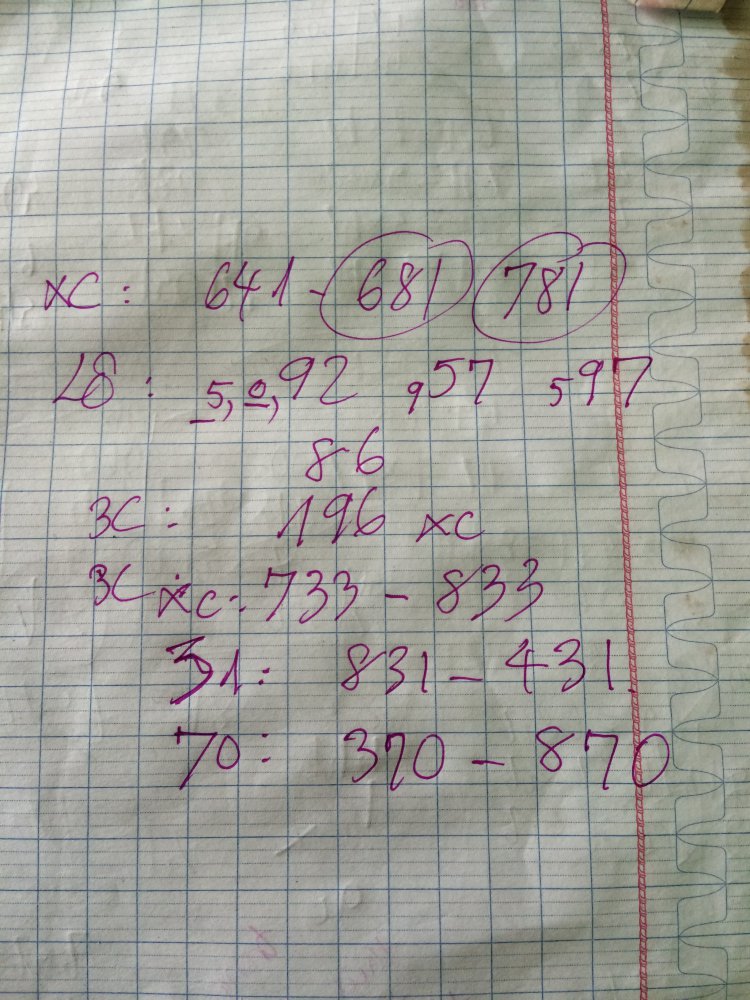 XC: 641 - 681 781
L8: 5,0,92 957 597
86
3C: 196 XC
3C XC: 733 - 833
31: 831 - 431
70: 370 - 870